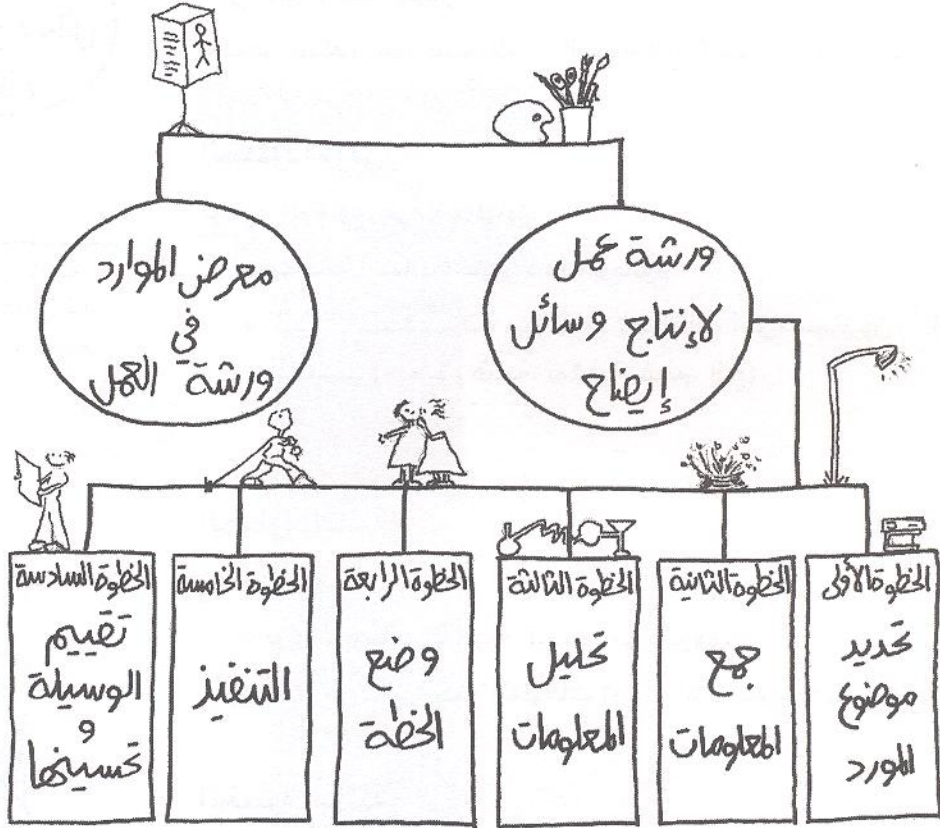 ورشة عمل
لإنتاج وسائل
إيضاح
معرض الموارد
في
ورشة العمل
الخطوة الأولى
تحديد
موضوع
المورد
الخطوة الثانية
جمع
المعلومات
الخطوة الثالثة
تحليل
المعلومات
الخطوة الرابعة
وضع
الخطة
الخطوة الخامسة
التنفيذ
الخطوة السادسة
تقييم
الوسيلة
و
تحسينها